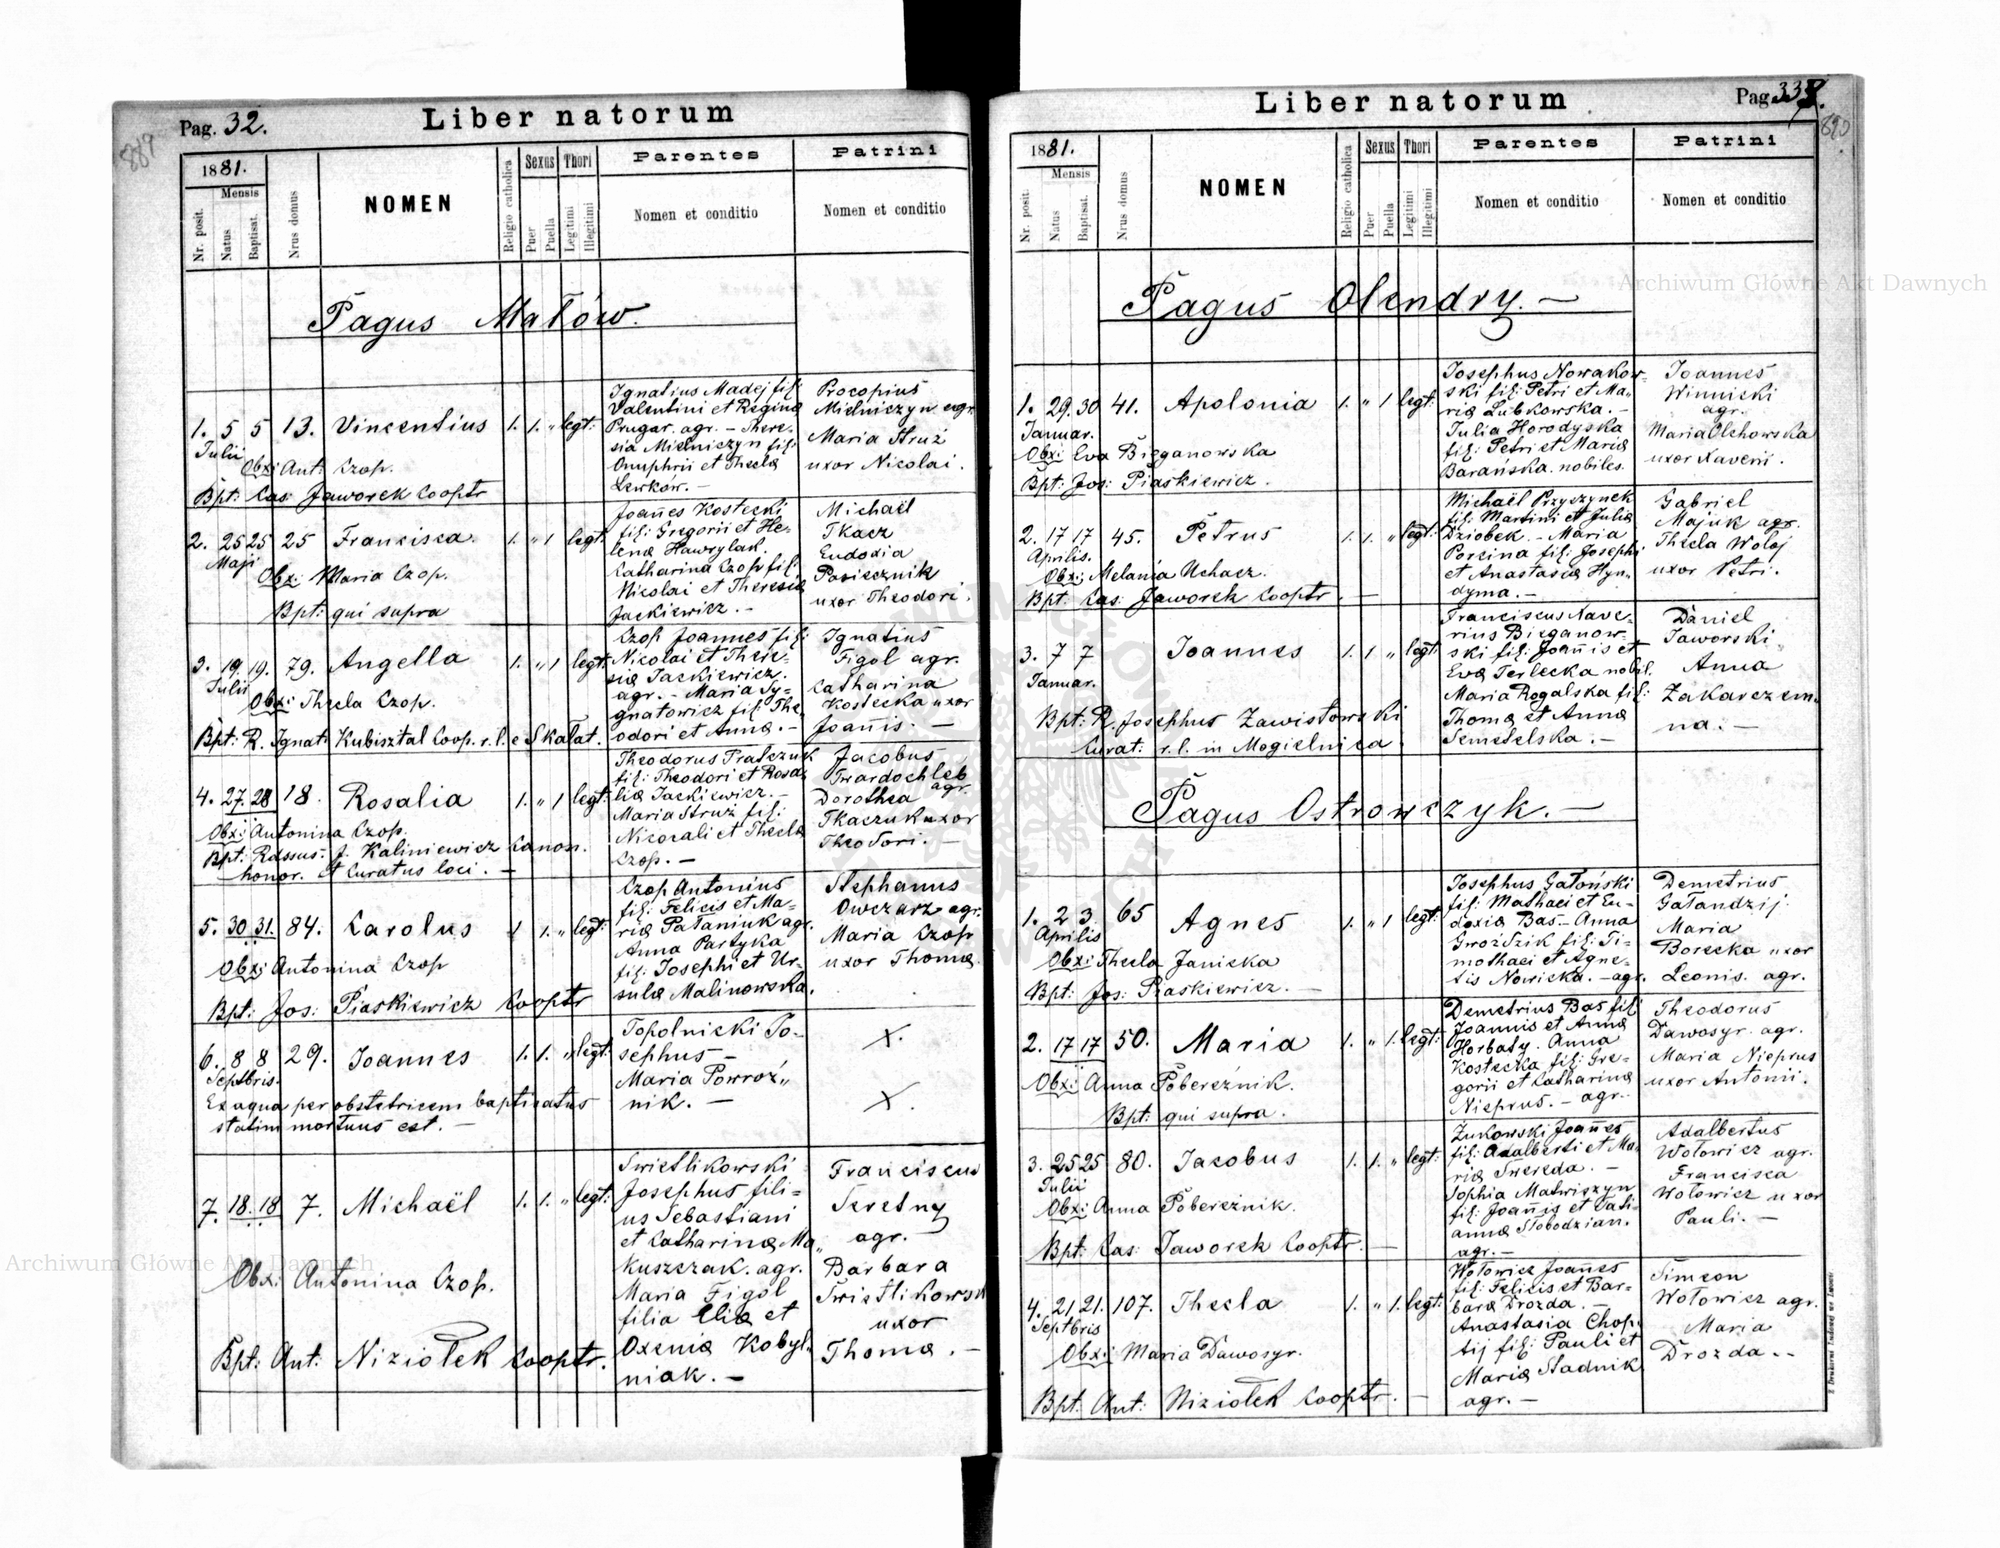 Pag. 32.
Liber natorum
889
1881.
Mensis
Nr. posit.
Natus
Baptisat.
Nrus domus
NOMEN
Religio catholica
Sexus
Puer
Puella
Thori
Legitimi
Illegitimi
Parentes
Nomen et conditio
Patrini
Nomen et conditio
Pagus Małów.
1. 5 5 13. Vincentius 1. 1. „ legt:
Julii
Obx: Ant: Czop.
Bpt: Cas: Jaworek Cooptr
Ignatius Madej fil:
Valentini et Regina
Prugar. agr. – There-
sia Mielniczyn fil:
Onuphrii et Thecla
Lewków. –
Procopius
Mielniczyn agr.
Maria Struż
uxor Nicolai.
2. 25 25 25 Francisca. 1. „ 1 legt:
Maji
Obx: Maria Czop.
Bpt: qui supra
Joañes Kostecki
fil: Gregorii et He-
lena Hawrylak.
Catharina Czop fil:
Nicolai et Theresia
Jackiewicz. –
Michaël
Tkacz
Eudoxia
Pasiecznik
uxor Theodori.
3. 19 19. 79. Angella 1. „ 1 legt:
Julii
Obx: Thecla Czop.
Bpt: R. Ignat: Kubisztal Coop. r. l. e Skałat.
Czop Joannes fil:
Nicolai et There-
sia Jackiewicz.
agr. – Maria Sy-
gnatowicz fil: The-
odori et Anna. –
Ignatius
Figol agr.
Catharina
Kostecka uxor
Joañis. –
4. 27. 28 18. Rosalia 1. „ 1 legt:
Obx: Antonina Czop.
Bpt: Rdssus: J. Kaliniewicz Canon.
honor. et Curatus loci. –
Theodorus Tratczuk
fil: Theodori et Rosa-
lia Jackiewicz. –
Maria Struż fil:
Nicorali et Thecla
Czop. –
Jacobus
Twardochleb
agr.
Dorothea
Tkaczuk uxor
Theodori. –
5. 30 31. 84. Carolus 1 1. „ legt:
Obx: Antonina Czop
Bpt: Jos: Piaskiewicz Cooptr
Czop Antonius
fil: Felicis et Ma-
ria Pałaniuk agr.
Anna Partyka
fil: Josephi et Ur-
sula Malinowska.
Stephanus
Owczarz agr.
Maria Czop
uxor Thoma.
6. 8 8 29. Joannes 1. 1. „ legt:
Septbris.
Ex aqua per obstetricem baptisatus
statim mortuus est. –
Topolnicki Jo-
sephus –
Maria Powroź„
nik. –
X.
X.
7. 18. 18 7. Michaël 1. 1. „ legt:
Obx: Antonina Czop.
Bpt: Ant: Niziołek Cooptr.
Swietlikowski
Josephus fili=
us Sebastiani
et Catharina Ma„
kuszczak. agr.
Maria Figol
filia Elia et
Oxenia Kobyl-
niak. –
Franciscus
Seretny
agr. –
Barbara
Świetlikowsk
uxor
Thoma. –
Liber natorum
Pag. 33
890
1881.
Mensis
Nr. posit.
Natus
Baptisat.
Nrus domus
NOMEN
Religio catholica
Sexus
Puer
Puella
Thori
Legitimi
Illegitimi
Parentes
Nomen et conditio
Patrini
Nomen et conditio
Pagus Olendry. –
1. 29. 30 41. Apolonia 1. „ 1 legt:
Januar.
Obx: Eva Bieganowska
Bpt: Jos: Piaskiewicz.
Josephus Nowakow-
ski fil: Petri et Ma-
ria Lubkowska. –
Julia Horodyska
fil: Petri et Maria
Barańska. nobiles.
Joannes
Winnicki
agr.
Maria Olchowska
uxor Xaverii.
2. 17 17 45. Petrus 1. 1. „ legt:
Aprilis.
Obx: Melania Uchacz.
Bpt: Cas: Jaworek Cooptr. –
Michaël Przyszynek
fil: Martini et Julia
Dziobek. – Maria
Porzina fil: Josephi
et Anastasia Hyn„
dyma. –
Gabriel
Majuk agr.
Thecla Wołoj
uxor Petri.
3. 7 7 Joannes 1. 1 „ legt:
Januar.
Bpt: R. Josephus Zawistowski
Curat: r. l. in Mogielnica.
Franciscus Xave-
rius Bieganow-
ski fil: Joañis et
Eva Terlecka nobil.
Maria Rogalska fil:
Thoma et Anna
Semetelska. –
Daniel
Jaworski
Anna
Zakarczem„
na. –
Pagus Ostrowczyk. –
1. 2 3. 65 Agnes 1. „ 1 legt:
Aprilis
Obx: Thecla Janicka
Bpt: Jos: Piaskiewicz. –
Josephus Gałoński
fil: Mathaei et Eu-
doxia Bas – Anna
Gwoździk fil: Ti-
mothaei et Agne-
tis Nowicka. – agr.
Demetrius
Gałandzij
Maria
Borecka uxor
Leonis. agr.
2. 17 17 50. Maria 1. „ 1. legt:
Obx: Anna Pobereźnik.
Bpt: qui supra.
Demetrius Bas fil:
Joannis et Anna
Horbaty. Anna
Kostecka fil: Gre-
gorii et Catharina
Nieprus. – agr.
Theodorus
Dawosyr. agr.
Maria Nieprus
uxor Antonii.
3. 25 25 80. Jacobus 1. 1. „ legt:
Julii
Obx: Anna Pobereźnik.
Bpt: Cas: Jaworek Cooptr. –
Żukowski Joannes
fil: Adalberti et Ma-
ria Swereda. –
Sophia Matwiszyn
fil: Joañis et Tati-
anna Słobodzian.
agr. –
Adalbertus
Wołowicz agr.
Francisca
Wołowicz uxor
Pauli. –
4. 21 21. 107. Thecla 1. „ 1. legt:
Septbris
Obx: Maria Dawosyr.
Bpt: Ant: Niziołek Cooptr. –
Wołowicz Joañes
fil: Felicis et Bar-
bara Drozda. –
Anastasia Chop-
tij fil: Pauli et
Maria Stadnik
agr. –
Simeon
Wołowicz agr.
Maria
Drozda. –
Z Drukarni ludowej we Lwowie.
Archiwum Główne Akt Dawnych
Archiwum Główne Akt Dawnych